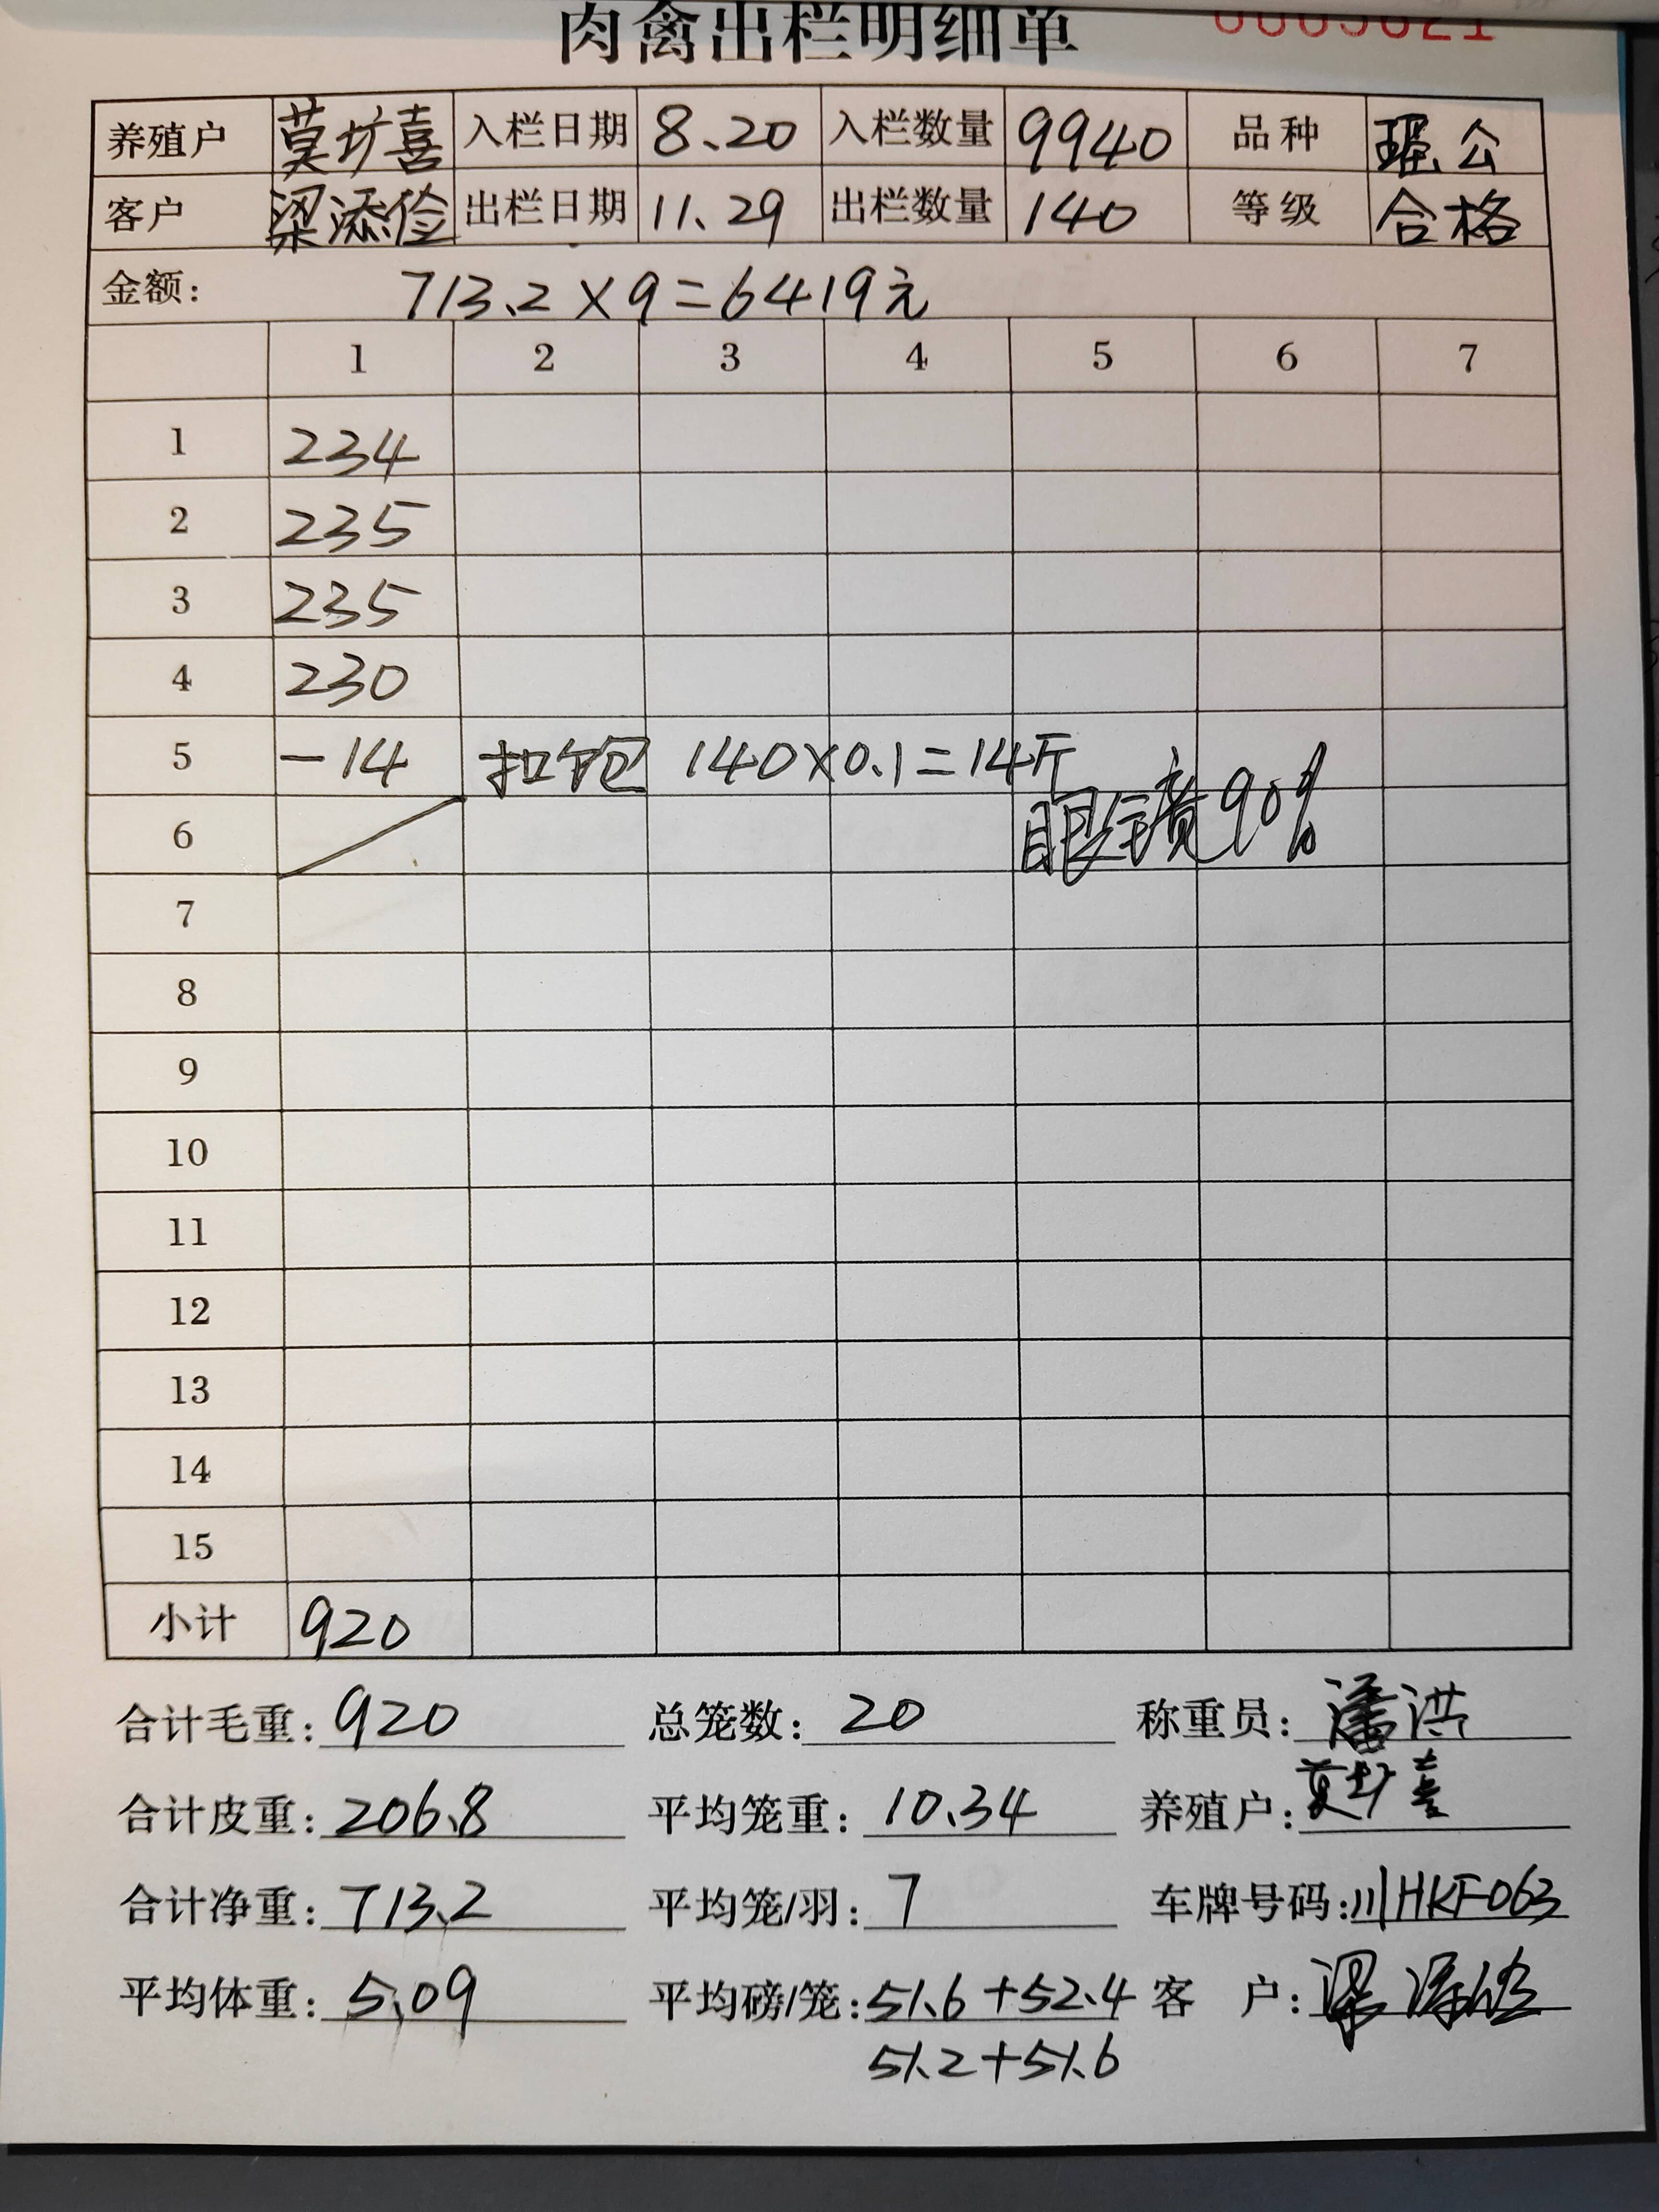 肉禽出栏明细单 0005621
养殖户 莫圹喜 入栏日期 8.20 入栏数量 9940 品种 瑶公
客户 梁添俭 出栏日期 11.29 出栏数量 140 等级 合格
金额: 713.2×9=6419元
1 2 3 4 5 6 7
1 234
2 235
3 235
4 230
5 -14 扣包 140×0.1=14斤
6 眼镜90%
7
8
9
10
11
12
13
14
15
小计 920
合计毛重: 920 总笼数: 20 称重员: 潘洪
合计皮重: 206.8 平均笼重: 10.34 养殖户: 莫圹喜
合计净重: 713.2 平均笼/羽: 7 车牌号码: 川HKF063
平均体重: 5.09 平均磅/笼: 51.6+52.4 客 户: 梁添俭
51.2+51.6